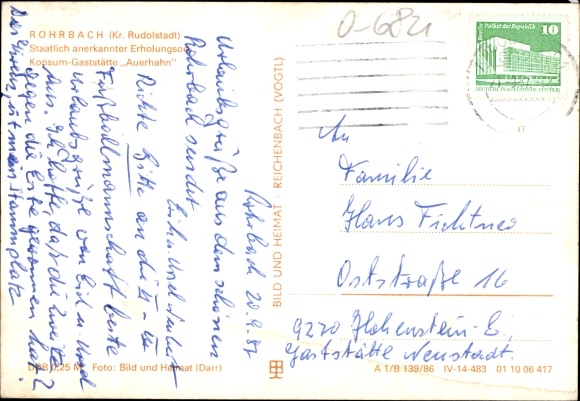 O-6821
ROHRBACH (Kr. Rudolstadt)
Staatlich anerkannter Erholungsort
Konsum-Gaststätte „Auerhahn"
Rohrbach 20.9.87
Urlaubsgrüße aus dem schönen
Rohrbach sendet
Erich und
Richte Bitte an die
Fußballmannschaft beste
Urlaubsgrüße von Erich und
aus. Ich hoffe, daß die zweite
gegen die Erste gewonnen hat?
Das Kreuz ist mein Stammplatz
DDR 0,25 M Foto: Bild und Heimat (Darr)
BILD UND HEIMAT REICHENBACH (VOGTL)
Berlin Palast der Republik
10
DEUTSCHE DEMOKRATISCHE REPUBLIK
An
Familie
Hans Fichtner
Oststraße 16
9270 Hohenstein-E.
Gaststätte Neustadt.
A 1/B 139/86 IV-14-483 01 10 06 417